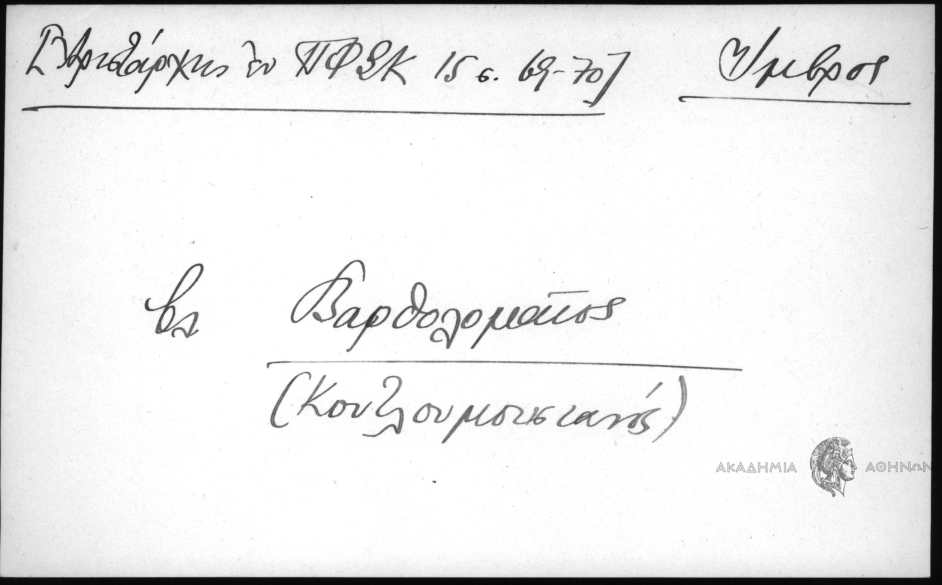 [Ἀριστάρχης ἐν ΠΦΣΚ 15 σ. 69-70] Ἴμβρος
βλ Βαρθολομαῖος
(Κουτλουμουσιανός)
ΑΚΑΔΗΜΙΑ ΑΘΗΝΩΝ